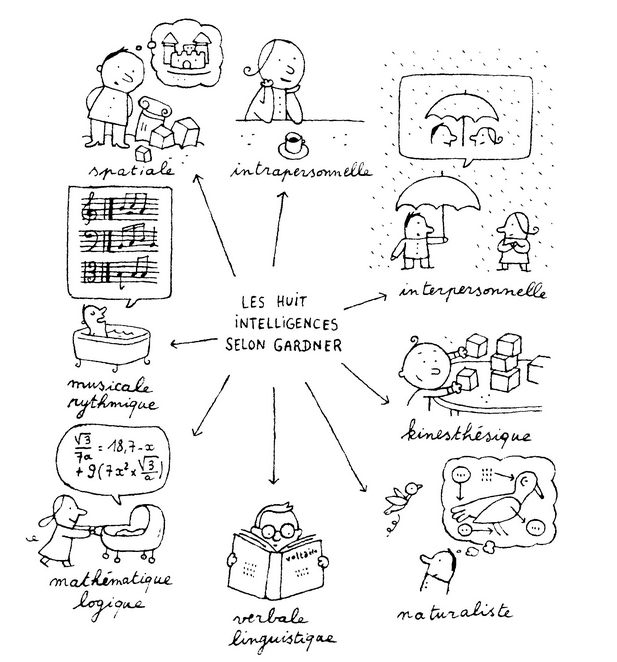 spatiale
intrapersonnelle
interpersonnelle
LES HUIT
INTELLIGENCES
SELON GARDNER
musicale
rythmique
kinesthésique
√3/7a = 18,7-x
+ 9(7x² × √3/a)
mathématique
logique
voltaire
verbale
linguistique
naturaliste